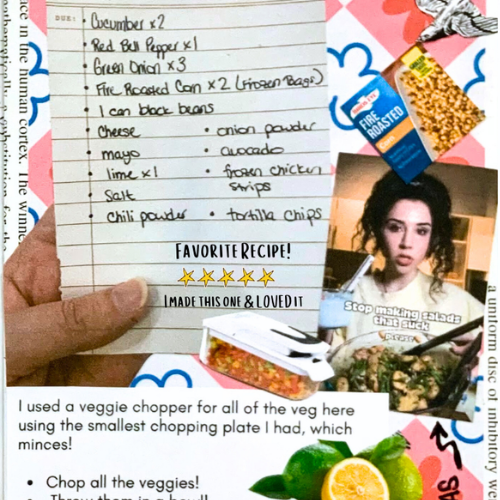 DUE:
• Cucumber x2
• Red Bell Pepper x1
• Green Onion x3
• Fire Roasted Corn x2 (Frozen Bags)
• 1 can black beans
• Cheese
• onion powder
• mayo
• avocado
• lime x1
• frozen chicken strips
• Salt
• chili powder
• tortilla chips
FAVORITE RECIPE!
I MADE THIS ONE & LOVED IT
FIRE
ROASTED
Corn
Stop making salads
that suck
please
I used a veggie chopper for all of the veg here
using the smallest chopping plate I had, which
minces!
• Chop all the veggies!
• Throw them in a bowl!
ace in the human cortex. The winner
a uniform disc of inhibitory